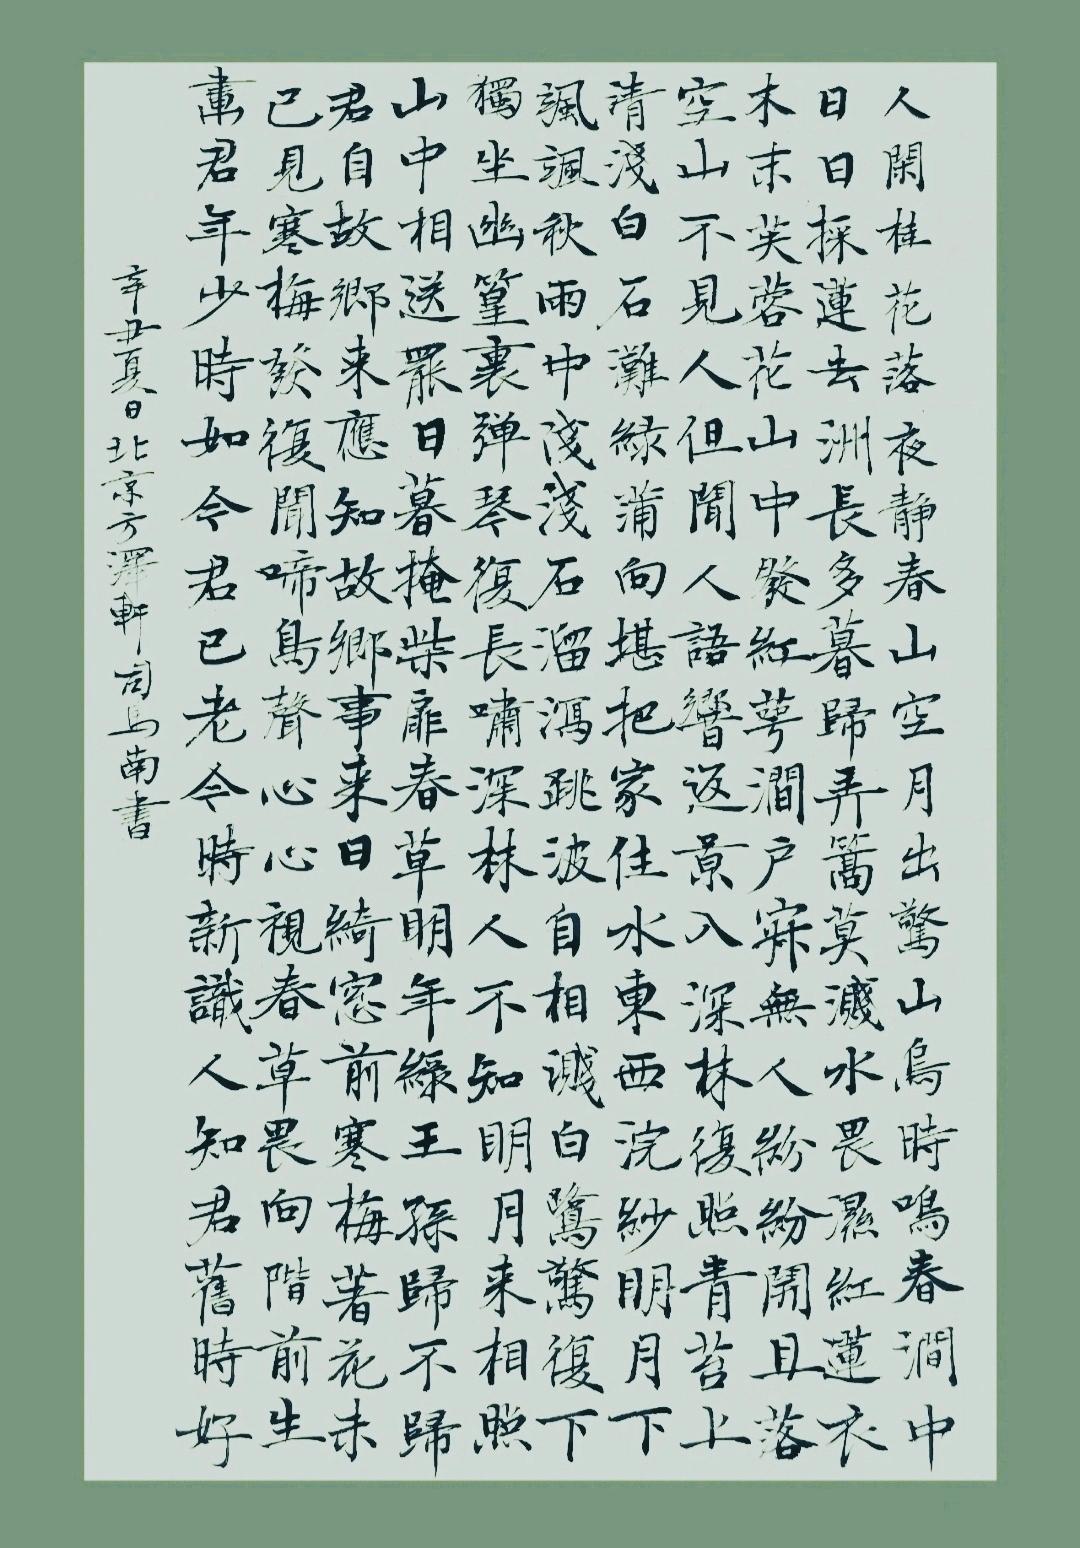 人閑桂花落夜靜春山空月出驚山鳥時鳴春澗中
日日採蓮去洲長多暮歸弄篙莫濺水畏濕紅蓮衣
木末芙蓉花山中發紅萼澗户寂無人紛紛開且落
空山不見人但聞人語響返景入深林復照青苔上
清淺白石灘綠蒲向堪把家住水東西浣紗明月下
颯颯秋雨中淺淺石溜瀉跳波自相濺白鷺驚復下
獨坐幽篁裏彈琴復長嘯深林人不知明月来相照
山中相送罷日暮掩柴扉春草明年綠王孫歸不歸
君自故鄉来應知故鄉事来日綺窓前寒梅著花未
已見寒梅發復聞啼鳥聲心心視春草畏向階前生
畫君年少時如今君已老今時新識人知君舊時好
辛丑夏日北京方澤軒司馬南書